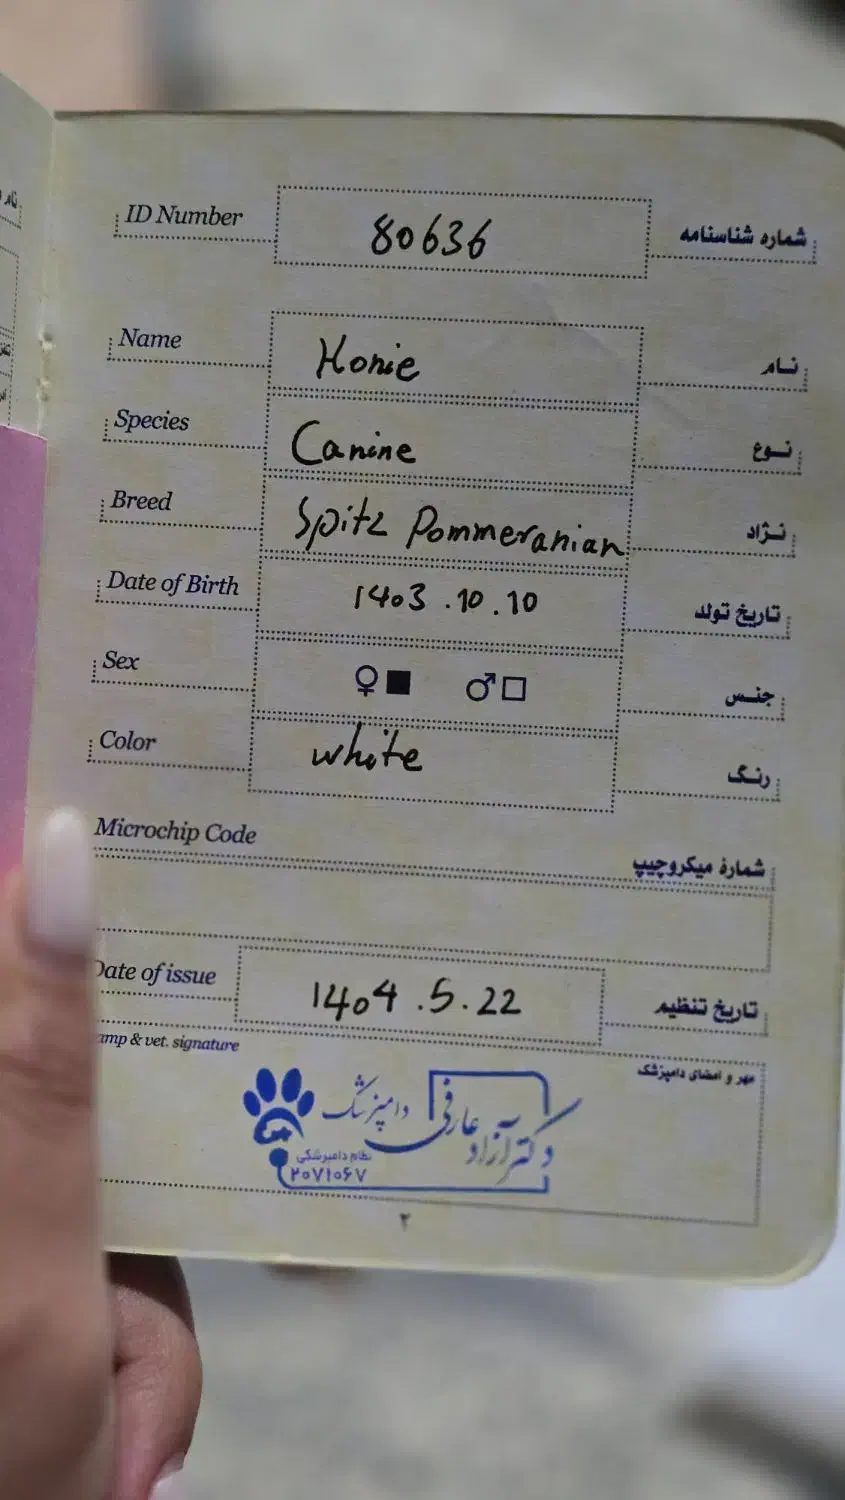 ID Number 80636 شماره شناسنامه
Name Honie نام
Species Canine نوع
Breed Spitz Pommeranian نژاد
Date of Birth 1403 .10.10 تاریخ تولد
Sex ♀■ ♂□ جنس
Color white رنگ
Microchip Code شمارهٔ میکروچیپ
Date of issue 1404 .5.22 تاریخ تنظیم
& vet. signature مهر و امضای دامپزشک
دکتر آزاد عارفی دامپزشک
نظام دامپزشکی
۲۰۷۱۰۶۷
۲